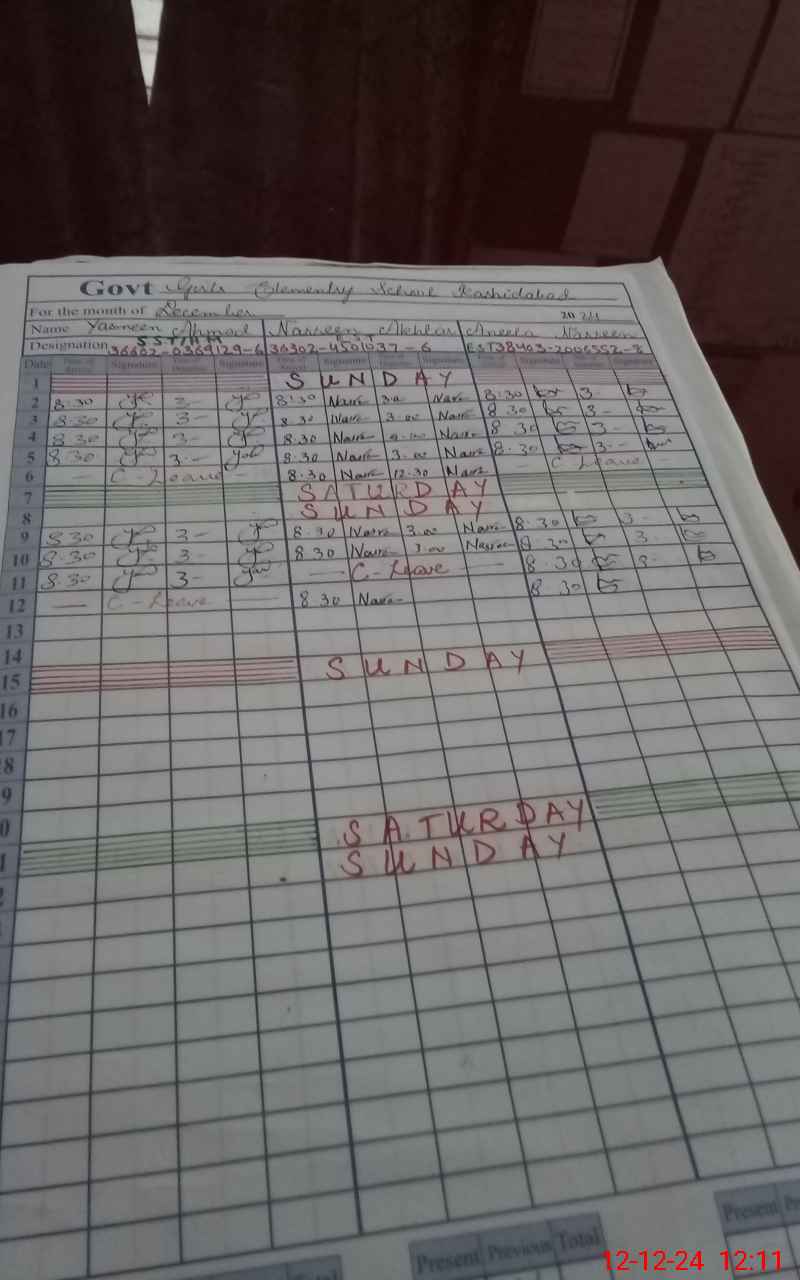 Govt Girls Elementry School Rashidabad
For the month of December 2024
Name Yasmeen Ahmad Nasreen Akhtar Aneela Nasreen
Designation SST/HM EST
36602-0369129-6 36302-4501037-6 EST38403-2006552-8
Date Signature Signature Signature Signature Signature
1 SUNDAY
2 8:30 3- 8:30 Nasre 3.00 Nasre 8:30 3
3 8:30 3- 8.30 Nasre 3.00 Nasre 8.30 3-
4 8.30 3- 8.30 Nasre Nasre 8.30 3-
5 8.30 3- 8.30 Nasre 3.00 Nasre 8.30 3-
6 — C-Leave — 8.30 Nasre 12.30 Nasre — C Leave —
7 SATURDAY
8 SUNDAY
9 8.30 3- 8.30 Nasre 3.00 Nasre 8.30 3-
10 8.30 3- 8.30 Nasre 3.00 Nasre 8.30 3.
11 8.30 3- — C-Leave — 8.30
12 — C-Leave — 8.30 Nasre 8.30
13
14
15 SUNDAY
16
17
8
9
0 SATURDAY
1 SUNDAY
2
Present Previous Total
Present
12-12-24 12:11